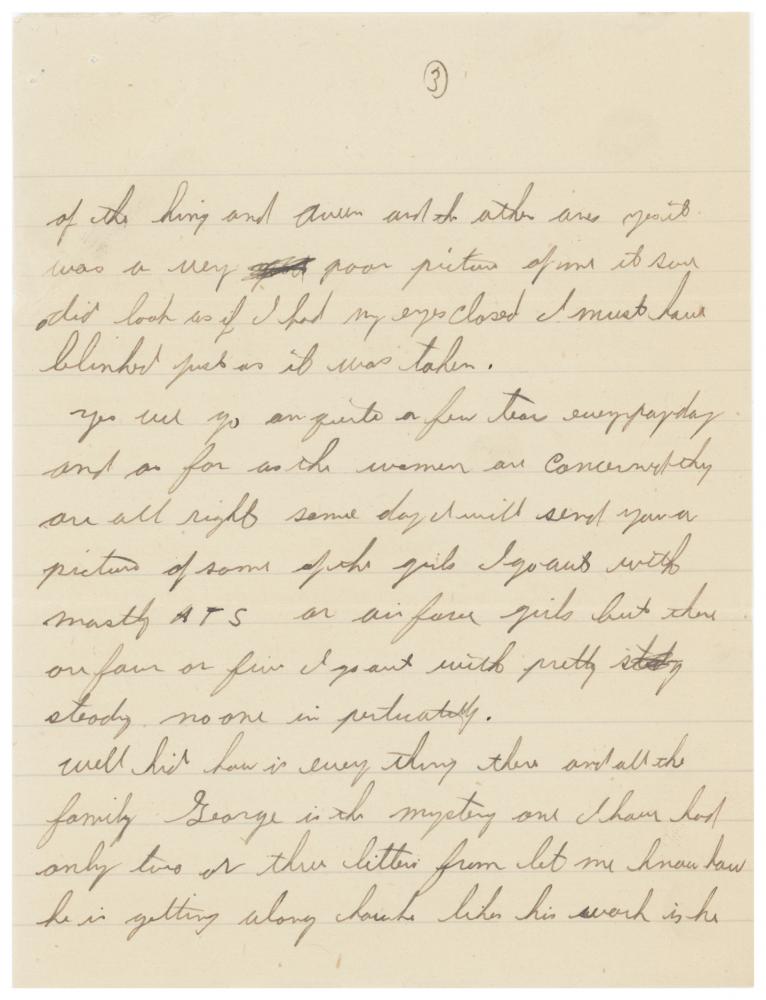 3
of the king and Queen and the other ones yes it
was a very poor picture of me it sure
did look as if I had my eyes closed I must have
blinked just as it was taken.
yes we go on quite a few tears every payday
and as far as the women are concerned they
are all right some day I will send you a
picture of some of the girls I go out with
mostly ATS or air force girls but there
are four or five I go out with pretty
steady no one in
well kid how is every thing there and all the
family George is the mystery one I have had
only two or three letters from let me know how
he is getting along how he likes his work is he